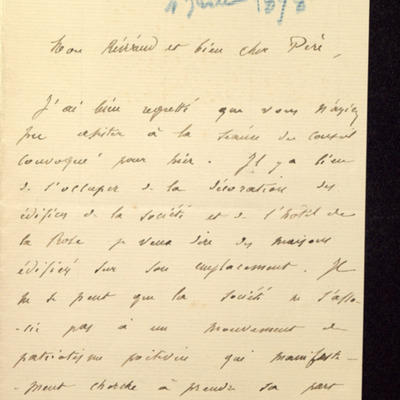 1878
Mon Révérend et bien cher Père,
J'ai bien regretté que vous n'ayiez
pu assister à la séance du conseil
convoqué pour hier. Il y a lieu
de s'occuper de la décoration des
édifices de la Société et de l'hôtel de
la Rose je veux dire des maisons
édifiées sur son emplacement. Il
ne se peut que la Société ne s'asso-
-cie pas à un mouvement de
patriotisme qui manifeste-
-ment cherche à prendre sa part